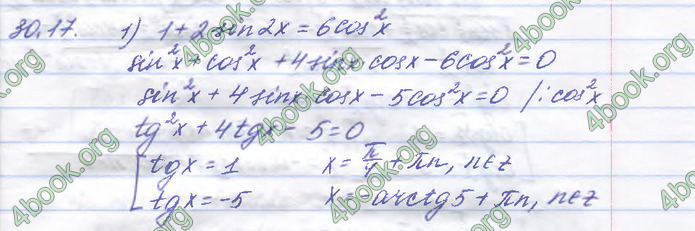 30.17. 1) 1 + 2 sin 2x = 6cos²x
sin²x + cos²x + 4 sinx cosx - 6cos²x = 0
sin²x + 4 sinx cosx - 5cos²x = 0 /: cos²x
tg²x + 4tgx - 5 = 0
[ tgx = 1 x = π/4 + πn, n∈z
tgx = -5 x = -arctg5 + πn, n∈z
4book.org
4book.org
4book.org
4book.org
4book.org
4book.org
4book.org